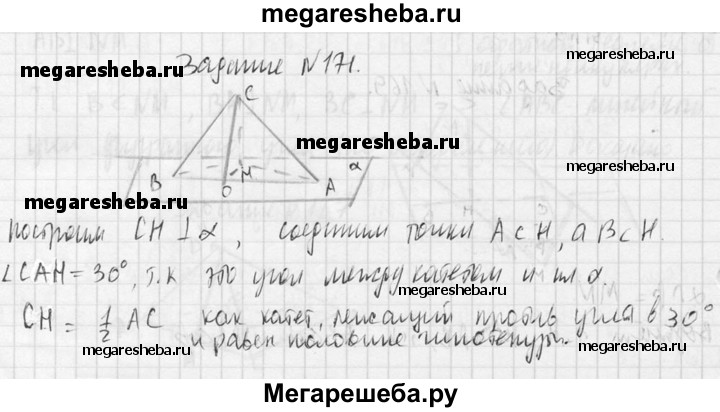 megaresheba.ru
Задание N171.
megaresheba.ru
megaresheba.ru
C
megaresheba.ru
M
α
B
O
A
megaresheba.ru
megaresheba.ru
построим CH ⊥ α, соединим точки A с H, а B с H.
∠CAH = 30°, т.к это угол между катетом и пл α
megaresheba.ru
CH = 1/2 AC как катет, лежащий против угла в 30°
и равен половине гипотенузы.
megaresheba.ru
megaresheba.ru
Мегарешеба.ру